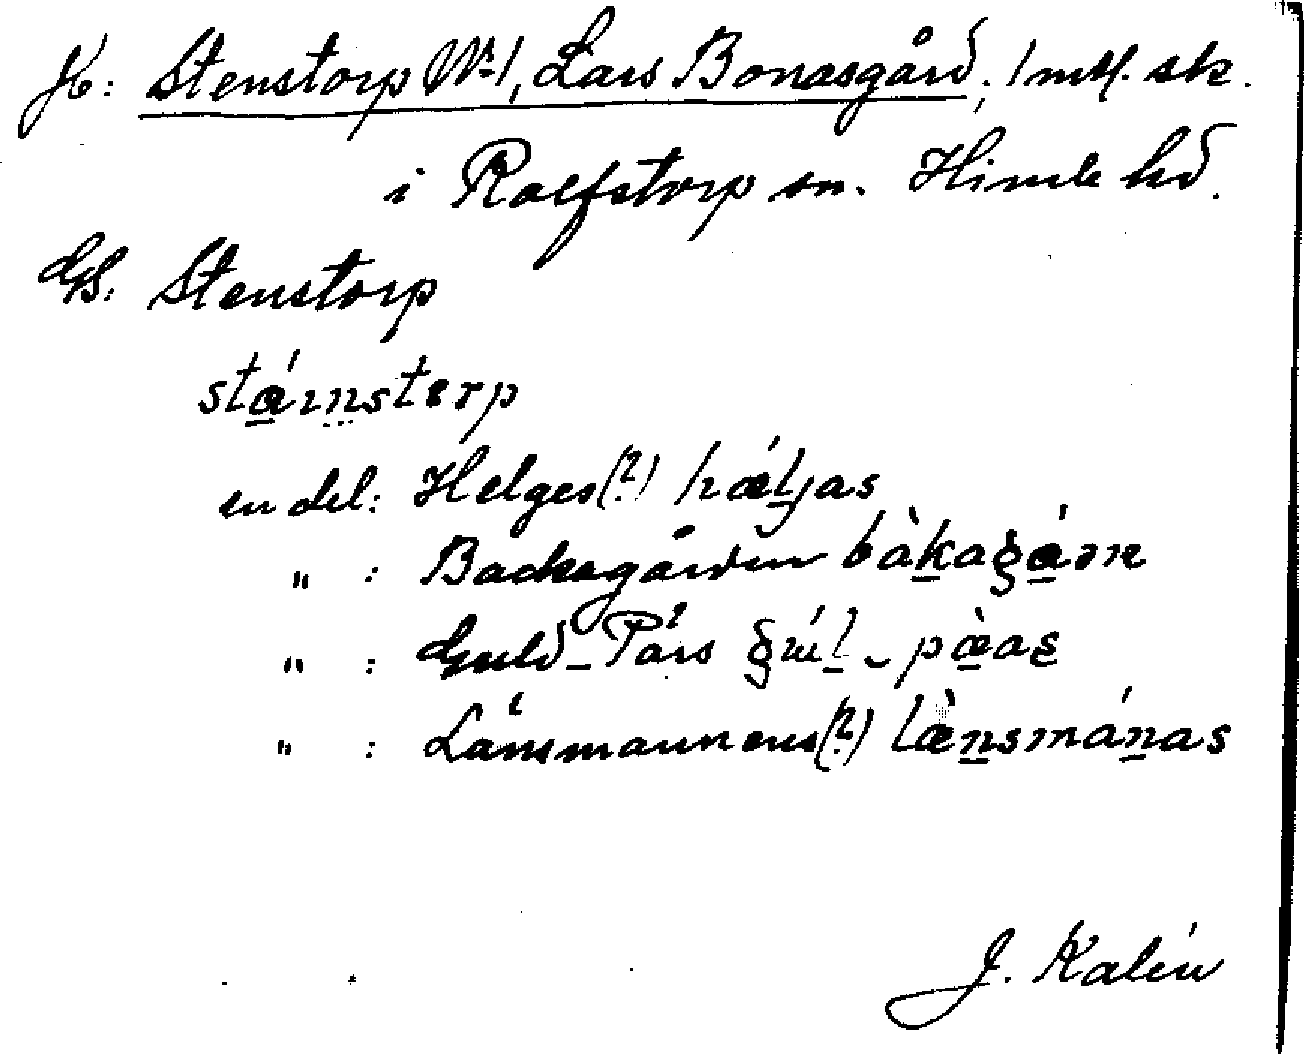 Jb: Stenstorp No 1, Lars Bonasgård, 1 mtl. sk.
i Rolfstorp sn. Himle hd.
GS: Stenstorp
stǽɪnsterp
en del: Helges(?) hæljas
" : Backagården bàkagɑ́ɔn
" : Guld-Pärs gúl-pæas
" : Länsmannens(?) lænsmánas
J. Kalén